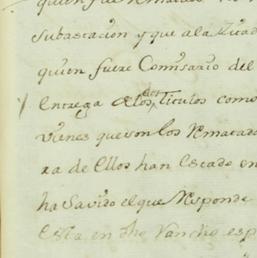 quien fue Rematado
Subastacion y que a la
quien fuere Comisario del
Entrega de los dos Titulos como
vienes que son los Rematado
ra de Ellos han Estado en
ha Savido el que Responde
Esta en dho Rancho esp